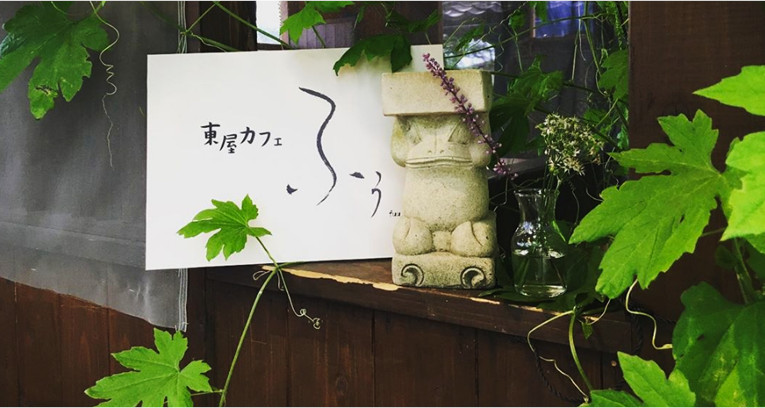 東屋カフェ
ふぅ
fuu